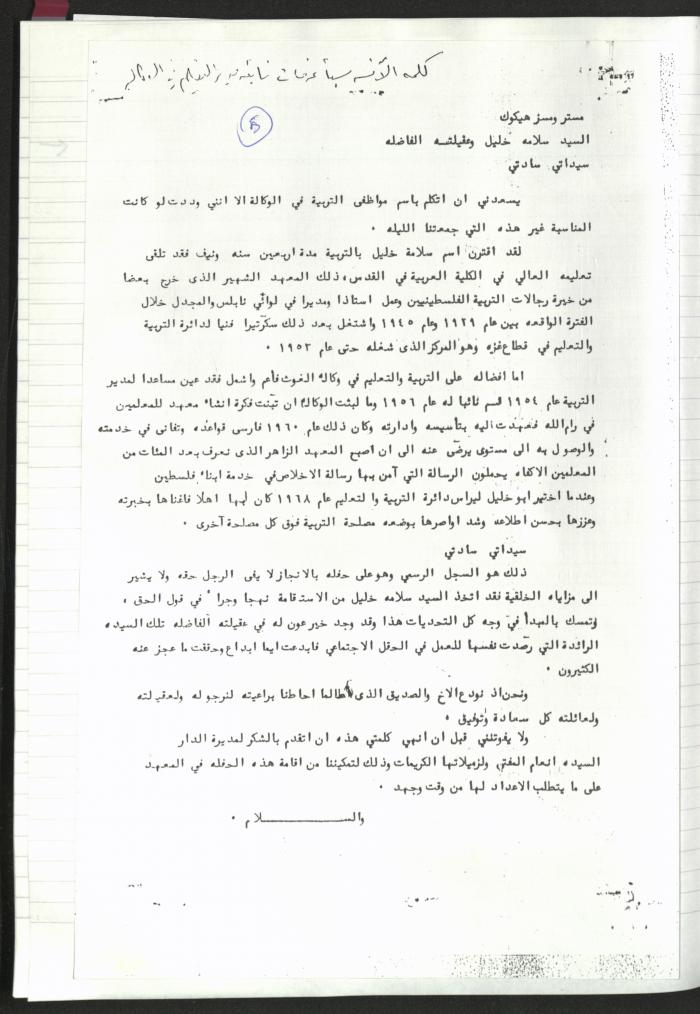 كلمة الآنسة سبأ عرفات نائبة مدير التعليم في الوكالة
مستر ومسز هيكوك
السيد سلامه خليل وعقيلتـه الفاضله
سيداتي سادتي
يسعدني ان اتكلم باسم مواظفى التربية في الوكالة الا انني وددت لو كانت
المناسبة غير هذه التي جمعتنا الليله .
لقد اقترن اسم سلامة خليل بالتربية مدة اربعين سنه ونيف فقد تلقى
تعليمه العالي في الكلية العربية في القدس، ذلك المعهد الشهير الذى خرج بعضا
من خيرة رجالات التربية الفلسطينيين وعمل استاذا ومديرا في لوائي نابلس والمجدل خلال
الفترة الواقعه بين عام ١٩٢٩ وعام ١٩٤٥ واشتغل بعد ذلك سكرتيرا فنيا لدائرة التربية
والتعليم في قطاع غزه وهو المركز الذى شغله حتى عام ١٩٥٣ .
اما افضاله على التربية والتعليم في وكالة الغوث فأعم واشمل فقد عين مساعدا لمدير
التربية عام ١٩٥٤ ثم نائبا له عام ١٩٥٦ وما لبثت الوكالة ان تبّنت فكرة انشاء معهد للمعلمين
في رام الله فعهدت اليه بتأسيسه وادارته وكان ذلك عام ١٩٦٠ فارسى قواعده وتفانى في خدمته
والوصول به الى مستوى يرضّى عنه الى ان اصبح المعهد الزاهر الذى نعرف بعد المئات من
المعلمين الاكفاء يحملون الرسالة التي آمن بها رسالة الاخلاص في خدمة ابناء فلسطين
وعندما اختير ابو خليل ليراس دائرة التربية والتعليم عام ١٩٦٨ كان لها اهلا فاغناها بخبرته
وعززها بحسن اطلاعه وشد اواصرها بوضعه مصلحة التربية فوق كل مصلحة آخرى .
سيداتي سادتي
ذلك هو السجل الرسمي وهو على حفله بالانجاز لا يفى الرجل حقه ولا يشير
الى مزاياه الخلقية فقد اتخذ السيد سلامه خليل من الاستقامة نهجا وجراءً في قول الحق ،
وتمسك بالمبدأ في وجه كل التحديات هذا وقد وجد خير عون له في عقيلته الفاضله تلك السيده
الرائدة التي رصّدت نفسها للعمل في الحقل الاجتماعي فابدعت ايما ابداع وحققت ما عجز عنه
الكثيرون .
ونحن اذ نودع الاخ والصديق الذى طالما احاطنا براعيته لنرجو له ولعقيلته
ولعائلته كل سعادة وتوفيق .
ولا يفوتني قبل ان انهي كلمتي هذه ان اتقدم بالشكر لمديرة الدار
السيده انعام المفتى ولزميلاتها الكريمات وذلك لتمكيننا من اقامة هذه الحفله في المعهد
على ما يتطلب الاعداد لها من وقت وجهد .
والســـــــــــلام .